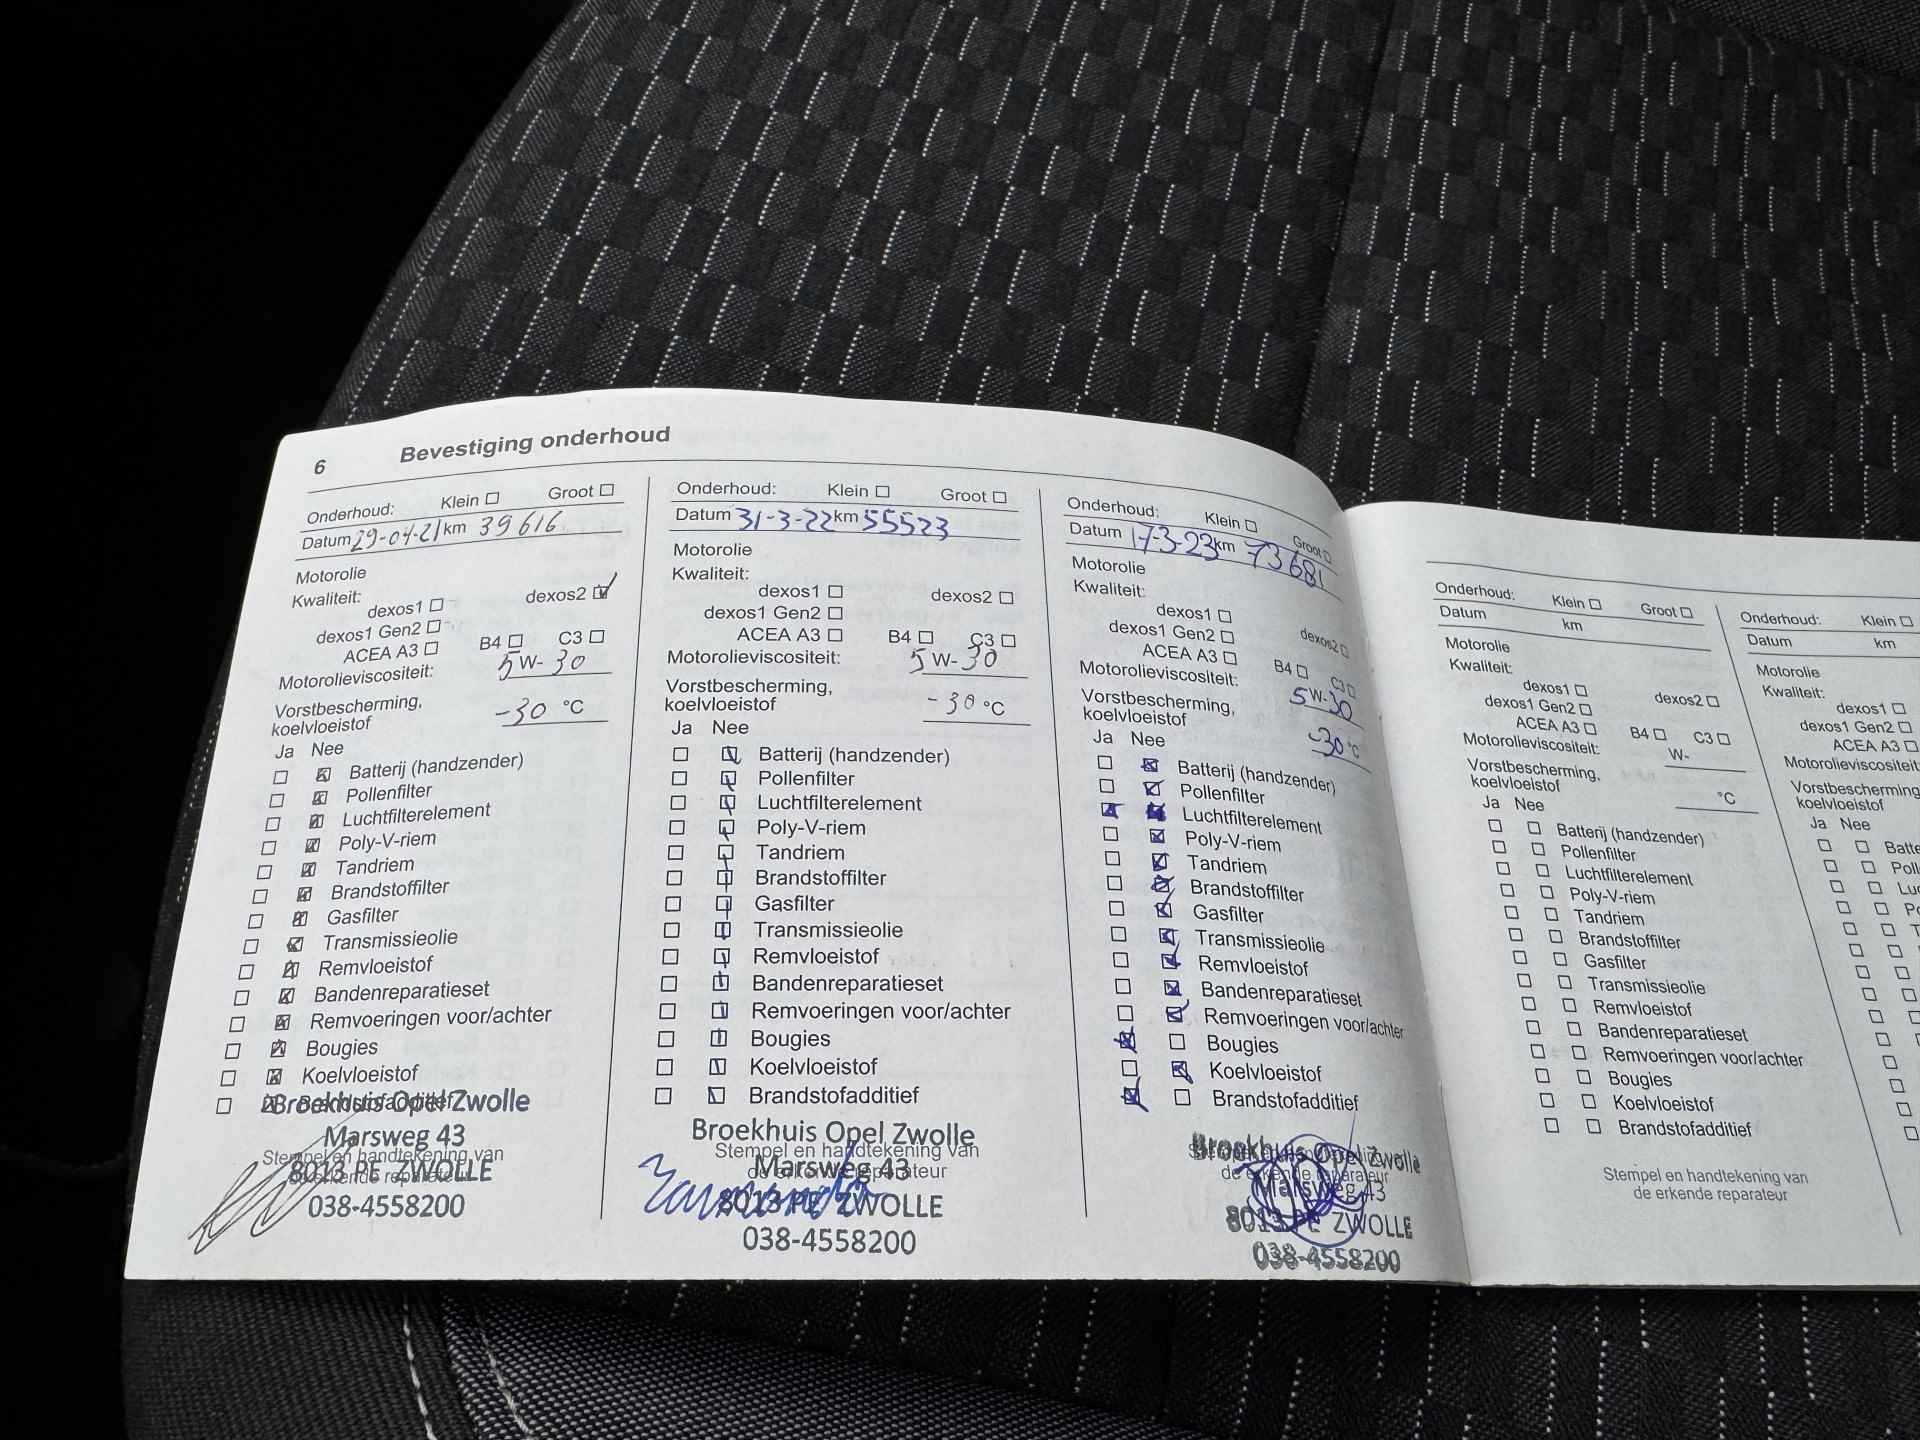 6 Bevestiging onderhoud
Onderhoud: Klein Groot
Datum 29-04-21 km 39616
Motorolie
Kwaliteit:
dexos1 dexos2
dexos1 Gen2
ACEA A3 B4 C3
Motorolieviscositeit: 5 W- 30
Vorstbescherming,
koelvloeistof -30 °C
Ja Nee
Batterij (handzender)
Pollenfilter
Luchtfilterelement
Poly-V-riem
Tandriem
Brandstoffilter
Gasfilter
Transmissieolie
Remvloeistof
Bandenreparatieset
Remvoeringen voor/achter
Bougies
Koelvloeistof
Brandstofadditief
Broekhuis Opel Zwolle
Marsweg 43
Stempel en handtekening van
8013 PE ZWOLLE
de erkende reparateur
038-4558200
Onderhoud: Klein Groot
Datum 31-3-22 km 55523
Motorolie
Kwaliteit:
dexos1 dexos2
dexos1 Gen2
ACEA A3 B4 C3
Motorolieviscositeit: 5 W-30
Vorstbescherming,
koelvloeistof -30 °C
Ja Nee
Batterij (handzender)
Pollenfilter
Luchtfilterelement
Poly-V-riem
Tandriem
Brandstoffilter
Gasfilter
Transmissieolie
Remvloeistof
Bandenreparatieset
Remvoeringen voor/achter
Bougies
Koelvloeistof
Brandstofadditief
Broekhuis Opel Zwolle
Stempel en handtekening van
Marsweg 43
de erkende reparateur
8013 PE ZWOLLE
038-4558200
Onderhoud: Klein Groot
Datum 17-3-23 km 73681
Motorolie
Kwaliteit:
dexos1 dexos2
dexos1 Gen2
ACEA A3 B4 C3
Motorolieviscositeit: 5 W-30
Vorstbescherming,
koelvloeistof -30 °C
Ja Nee
Batterij (handzender)
Pollenfilter
Luchtfilterelement
Poly-V-riem
Tandriem
Brandstoffilter
Gasfilter
Transmissieolie
Remvloeistof
Bandenreparatieset
Remvoeringen voor/achter
Bougies
Koelvloeistof
Brandstofadditief
Broekhuis Opel Zwolle
de erkende reparateur
Marsweg 43
8013 PE ZWOLLE
038-4558200
Onderhoud: Klein Groot
Datum km
Motorolie
Kwaliteit:
dexos1 dexos2
dexos1 Gen2
ACEA A3 B4 C3
Motorolieviscositeit: W-
Vorstbescherming,
koelvloeistof °C
Ja Nee
Batterij (handzender)
Pollenfilter
Luchtfilterelement
Poly-V-riem
Tandriem
Brandstoffilter
Gasfilter
Transmissieolie
Remvloeistof
Bandenreparatieset
Remvoeringen voor/achter
Bougies
Koelvloeistof
Brandstofadditief
Stempel en handtekening van
de erkende reparateur
Onderhoud: Klein
Datum km
Motorolie
Kwaliteit:
dexos1
dexos1 Gen2
ACEA A3
Motorolieviscositeit
Vorstbescherming
koelvloeistof
Ja Nee
Batte
Poll
Luc
Po
T